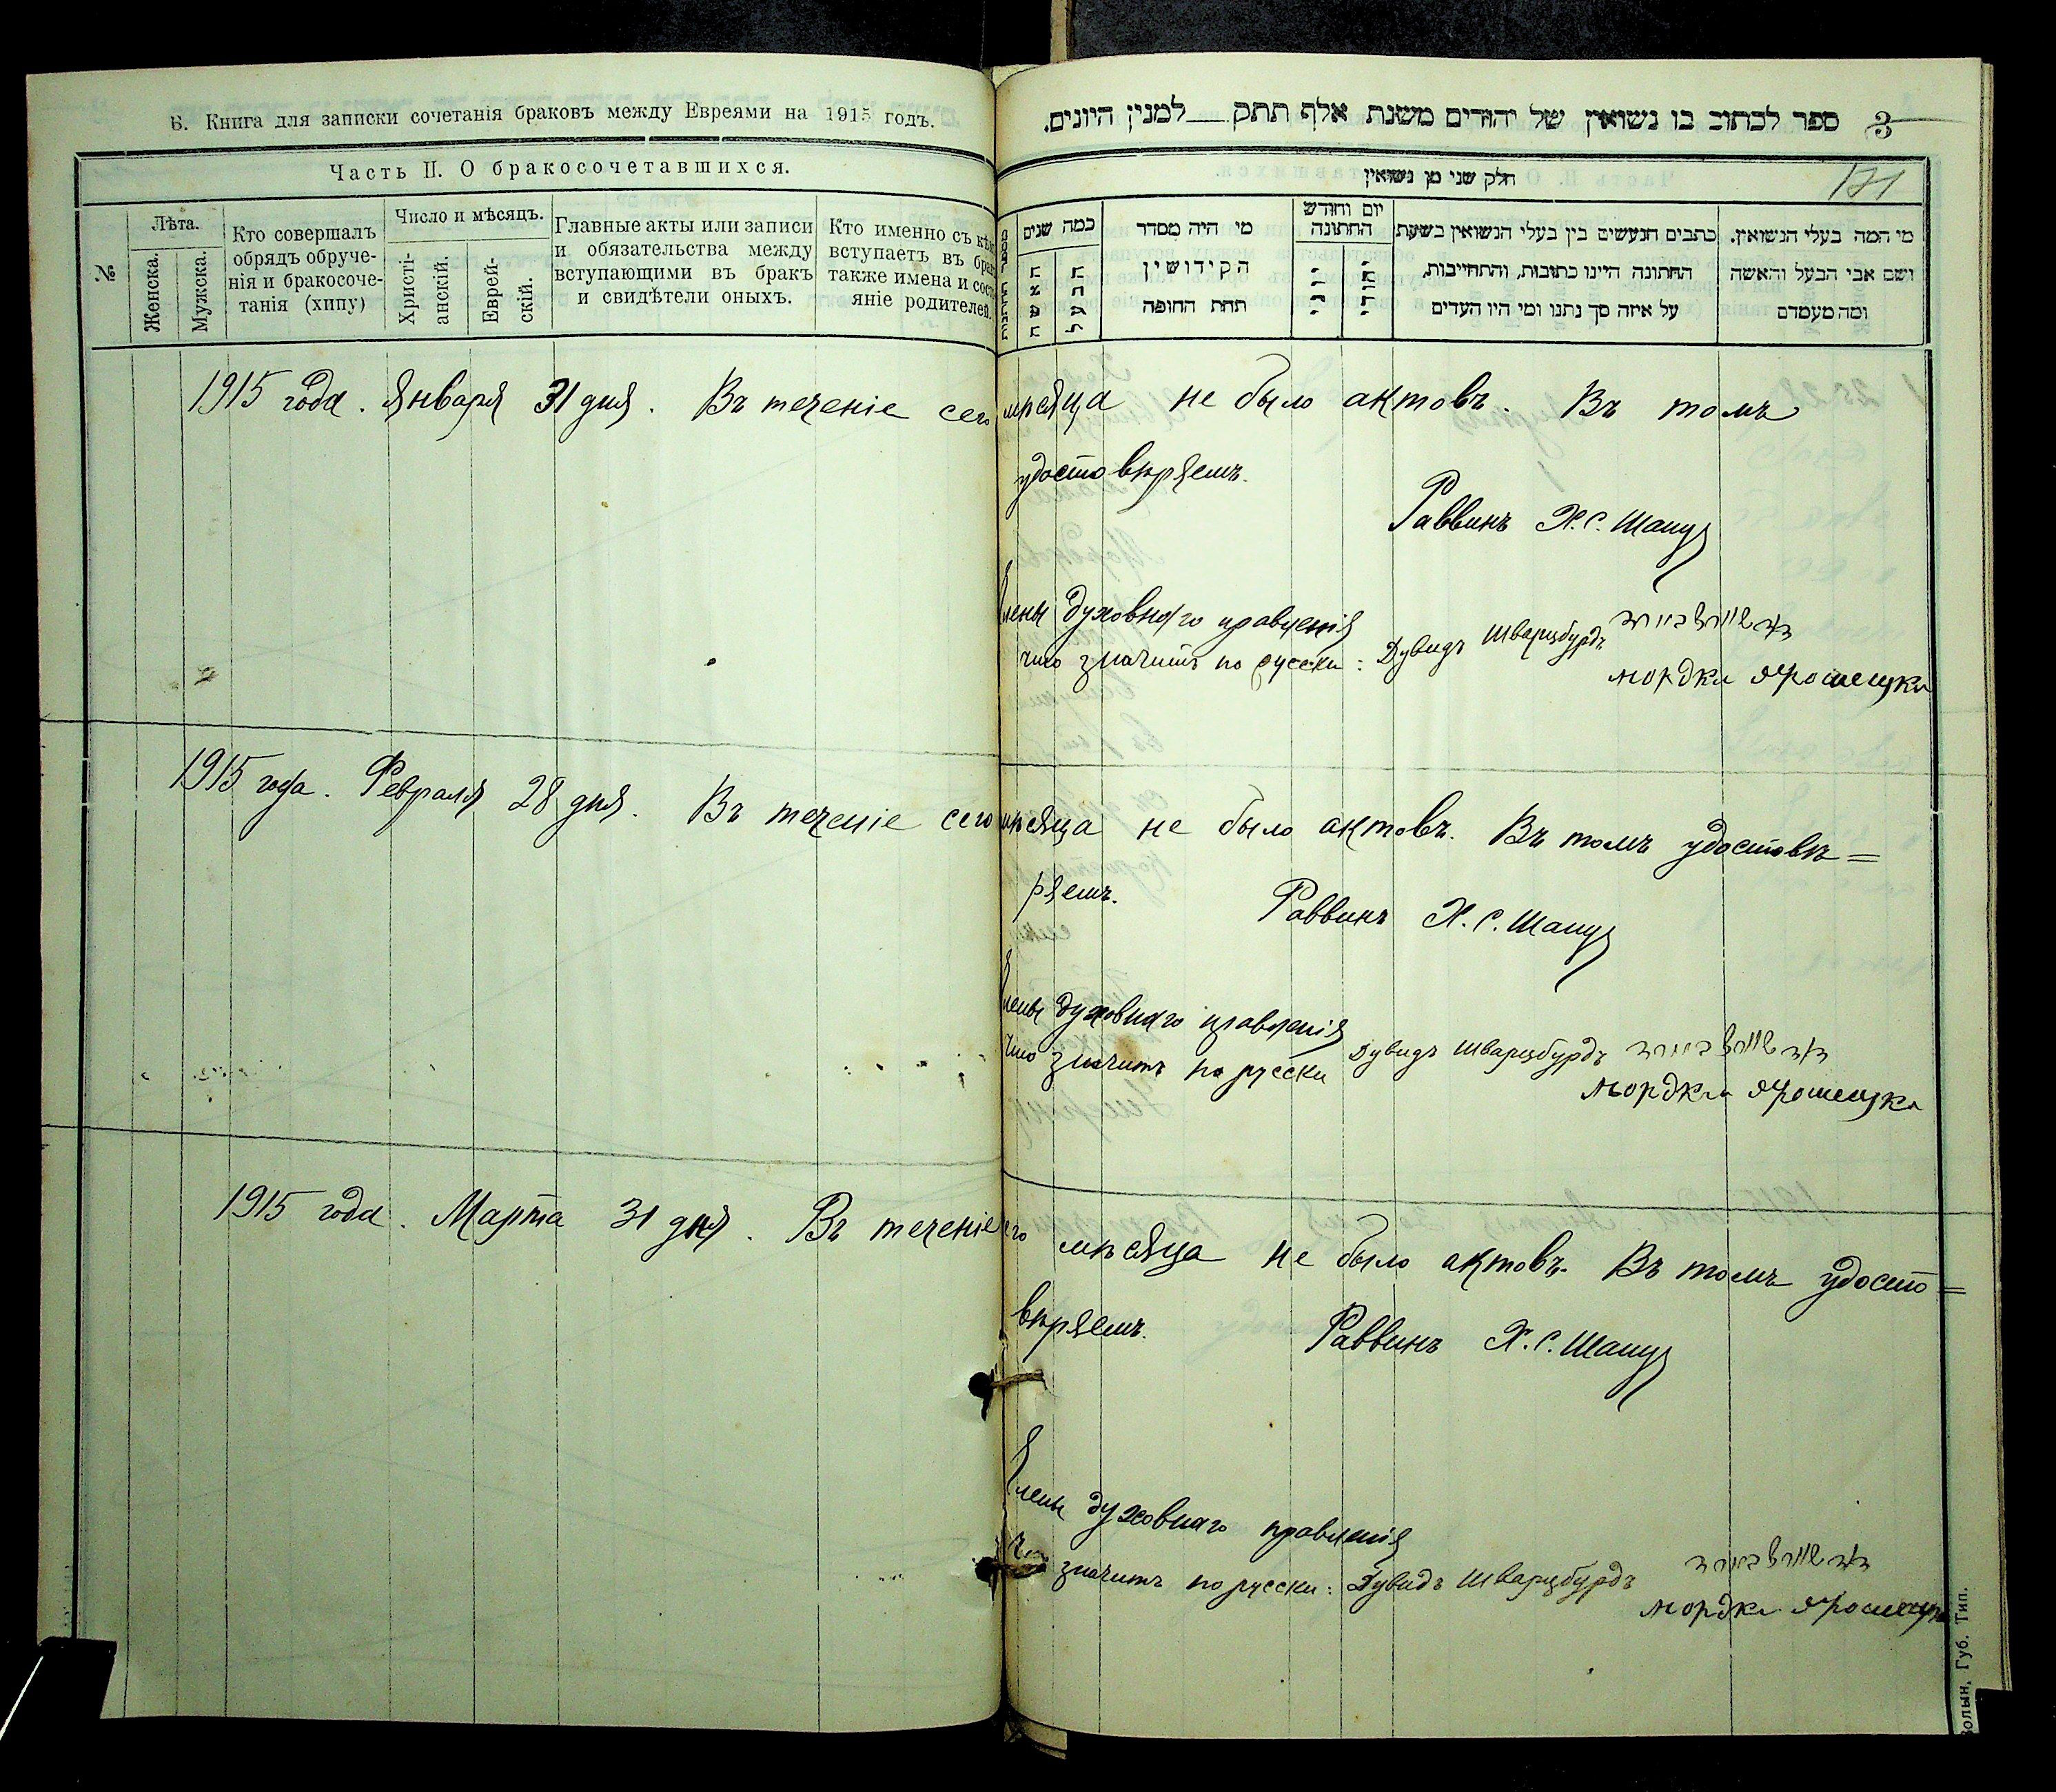 В. Книга для записки сочетанія браковъ между Евреями на 1915 годъ.
Часть II. О бракосочетавшихся.
№
Лѣта.
Женска.
Мужска.
Кто совершалъ
обрядъ обруче-
нія и бракосоче-
танія (хипу)
Число и мѣсяцъ.
Христі-
анскій.
Еврей-
скій.
Главные акты или записи
и обязательства между
вступающими въ бракъ
и свидѣтели оныхъ.
Кто именно съ кѣмъ
вступаетъ въ бракъ
также имена и состо-
яніе родителей.
ספר לכתוב בו נשואין של יהודים משנת אלף תתק למנין היונים.
3
171
חלק שני מן נשואין
כמה שנים
האשה
הבעל
מי היה מסדר
הקידושין
תחת החופה
יום וחודש
החתונה
יוני
יהודי
כתבים הנעשים בין בעלי הנשואין בשעת
החתונה היינו כתובות, והתחייבות,
על איזה סך נתנו ומי היו העדים
מי המה בעלי הנשואין.
ושם אבי הבעל והאשה
ומה מעמדם
1915 года. Января 31 дня. Въ теченіе сего мѣсяца не было актовъ. Въ томъ
удостовѣряемъ.
Раввинъ Х. С. Шапу
Члены духовнаго правленія
что значитъ по русски: Дувидъ Шварцбурдъ
мордка Ярошецка
1915 года. Февраля 28 дня. Въ теченіе сего мѣсяца не было актовъ. Въ томъ удостовѣ=
ряемъ. Раввинъ Х. С. Шапу
Члены духовнаго правленія
что значитъ по русски Дувидъ Шварцбурдъ
мордка Ярошецка
1915 года. Марта 31 дня. Въ теченіе сего мѣсяца не было актовъ. Въ томъ удосто=
вѣряемъ. Раввинъ Х. С. Шапу
Члены духовнаго правленія
что значитъ по русски: Дувидъ Шварцбурдъ
мордка Ярошецка
Волын, Губ. Тип.